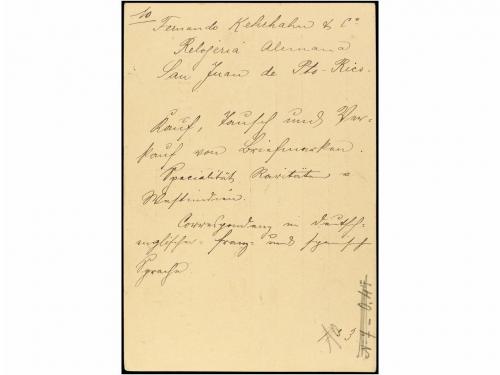 10
Fernando Kehrhahn & Cº
Relojeria Alemana
San Juan de Pto-Rico.
Kauf, Tausch und Ver-
kauf von Briefmarken.
Specialität Raritäten
Westindien.
Correspondenz in deutsch-
englischer- franz- und spanisch
Sprache.